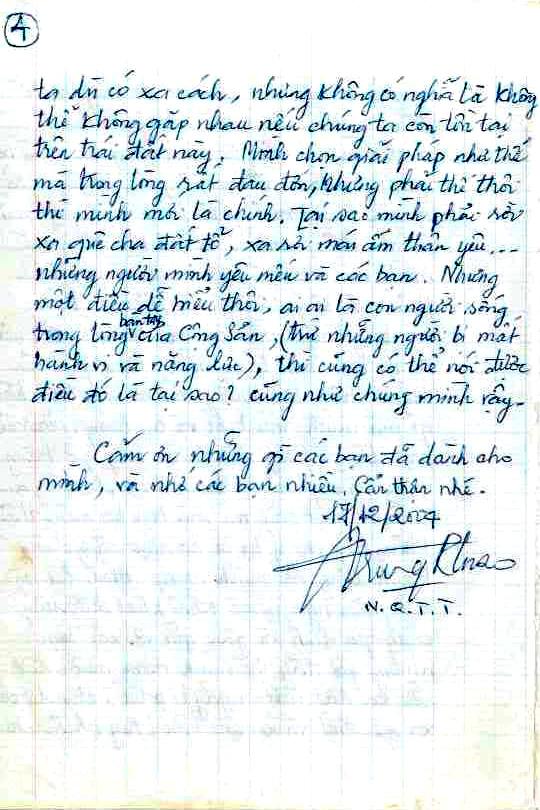 4
ta dù có xa cách, nhưng không có nghĩa là không
thể không gặp nhau nếu chúng ta còn tồn tại
trên trái đất này. Mình chọn giải pháp như thế
mà trong lòng rất đau đớn, nhưng phải thế thôi
thì mình mới là chính. Tại sao mình phải rời
xa quê cha đất tổ, xa rời mái ấm thân yêu...
những người mình yêu mến và các bạn. Nhưng
một điều dễ hiểu thôi, ai ai là con người sống
trong lòng bàn tay của Cộng Sản, (trừ những người bị mất
hành vi và năng lực), thì cũng có thể nói được
điều đó là tại sao? cũng như chúng mình vậy.
Cảm ơn những gì các bạn đã dành cho
mình, và nhớ các bạn nhiều. Cẩn thận nhé.
17/12/2004
N.Q.T.T.